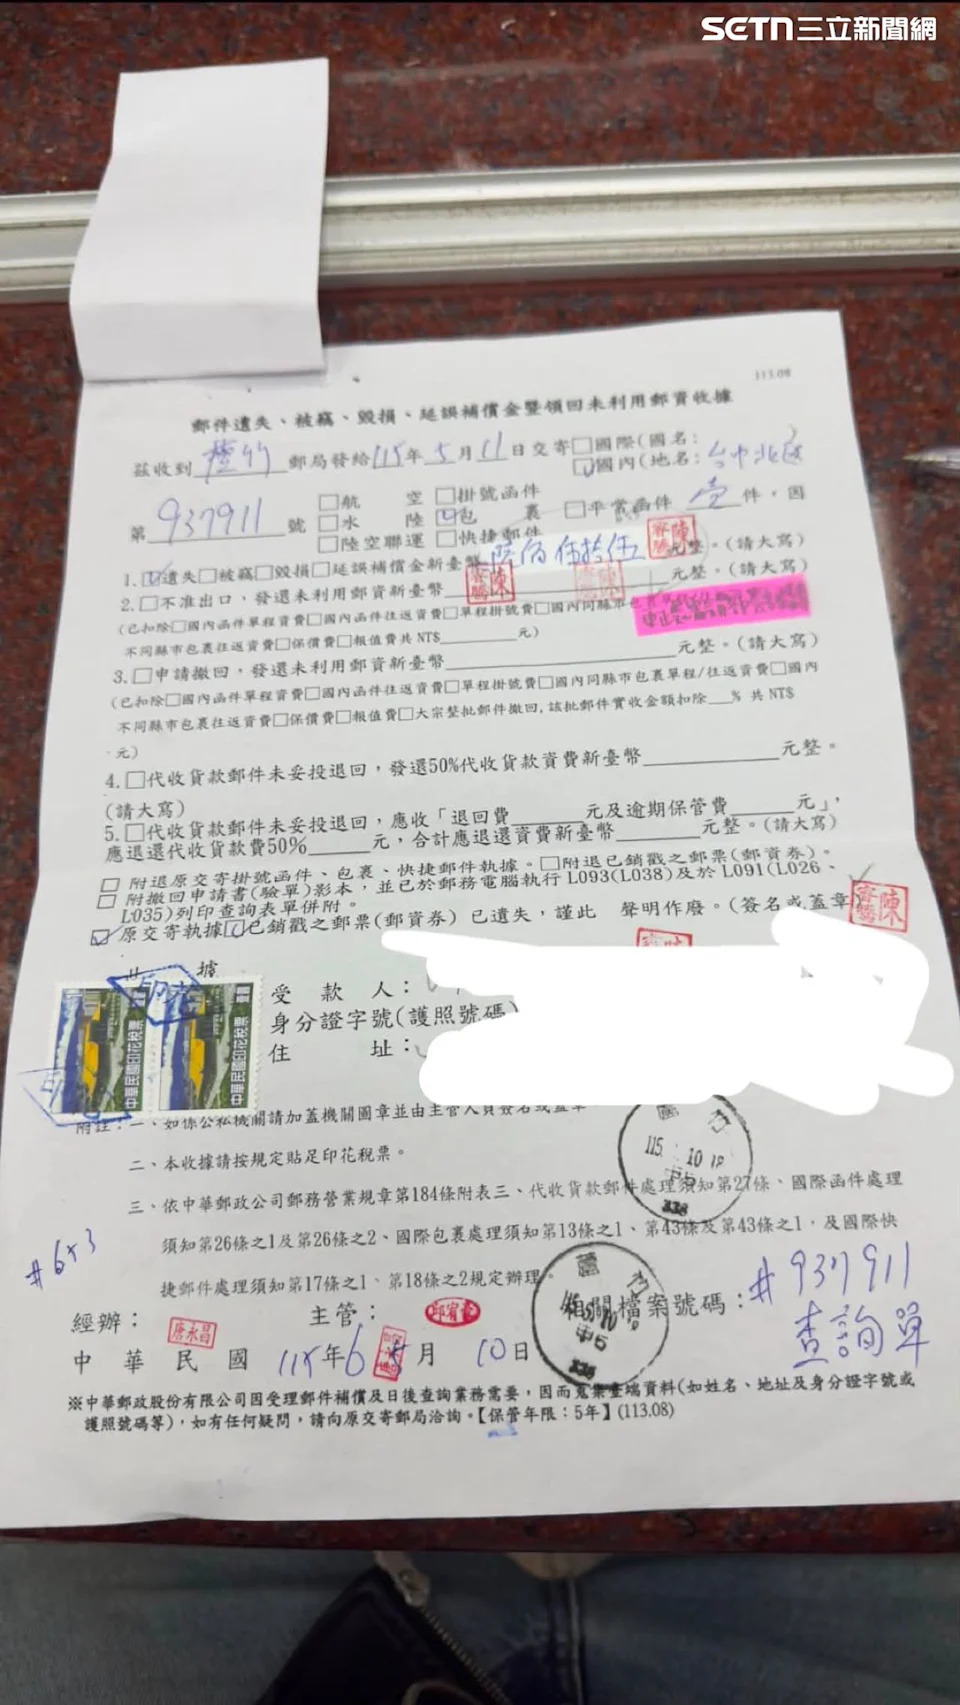 SETN三立新聞網
113.08
郵件遺失、被竊、毀損、延誤補償金暨領回未利用郵資收據
茲收到 郵局發給115年5月11日交寄□國際(國名: )
☑國內(地名:台中北區
第937911號 □航 空 □掛號函件 □平常函件 壹件,因
□水 陸 ☑包 裹
□陸空聯運 □快捷郵件
1.☑遺失□被竊□毀損□延誤補償金新臺幣陸佰伍拾伍元整。(請大寫)
2.□不准出口,發還未利用郵資新臺幣 元整。(請大寫)
(已扣除□國內函件單程資費□國內函件往返資費□單程掛號費□國內同縣市包
不同縣市包裹往返資費□保價費□報值費共NT$ 元)
3.□申請撤回,發還未利用郵資新臺幣 元整。(請大寫)
(已扣除□國內函件單程資費□國內函件往返資費□單程掛號費□國內同縣市包裹單程/往返資費□國內
不同縣市包裹往返資費□保價費□報值費□大宗整批郵件撤回,該批郵件實收金額扣除 % 共 NT$
元)
4.□代收貨款郵件未妥投退回,發還50%代收貨款資費新臺幣 元整。
(請大寫)
5.□代收貨款郵件未妥投退回,應收「退回費 元及逾期保管費 元」,
應退還代收貨款費50% 元,合計應退還資費新臺幣 元整。(請大寫)
□ 附退原交寄掛號函件、包裹、快捷郵件執據。□附退已銷戳之郵票(郵資券)。
□ 附撤回申請書(驗單)影本,並已於郵務電腦執行L093(L038)及於L091(L026、
L035)列印查詢表單併附。
☑ 原交寄執據☑已銷戳之郵票(郵資券)已遺失,謹此 聲明作廢。(簽名或蓋章)
此 據
受 款 人:
身分證字號(護照號碼)
住 址:
中華民國印花稅票
中華民國印花稅票
附註:一、如係公私機關請加蓋機關圖章並由主管人員簽名或蓋章
二、本收據請按規定貼足印花稅票。
三、依中華郵政公司郵務營業規章第184條附表三、代收貨款郵件處理須知第27條、國際函件處理
須知第26條之1及第26條之2、國際包裹處理須知第13條之1、第43條及第43條之1,及國際快
捷郵件處理須知第17條之1、第18條之2規定辦理。
115. 10 338
338
經辦: 唐永昌 主管: 邱宥豪 相關檔案號碼:#937911
查詢單
中 華 民 國 115年6月 10日
※中華郵政股份有限公司因受理郵件補償及日後查詢業務需要,因而蒐集臺端資料(如姓名、地址及身分證字號或
護照號碼等),如有任何疑問,請向原交寄郵局洽詢。【保管年限:5年】(113.08)